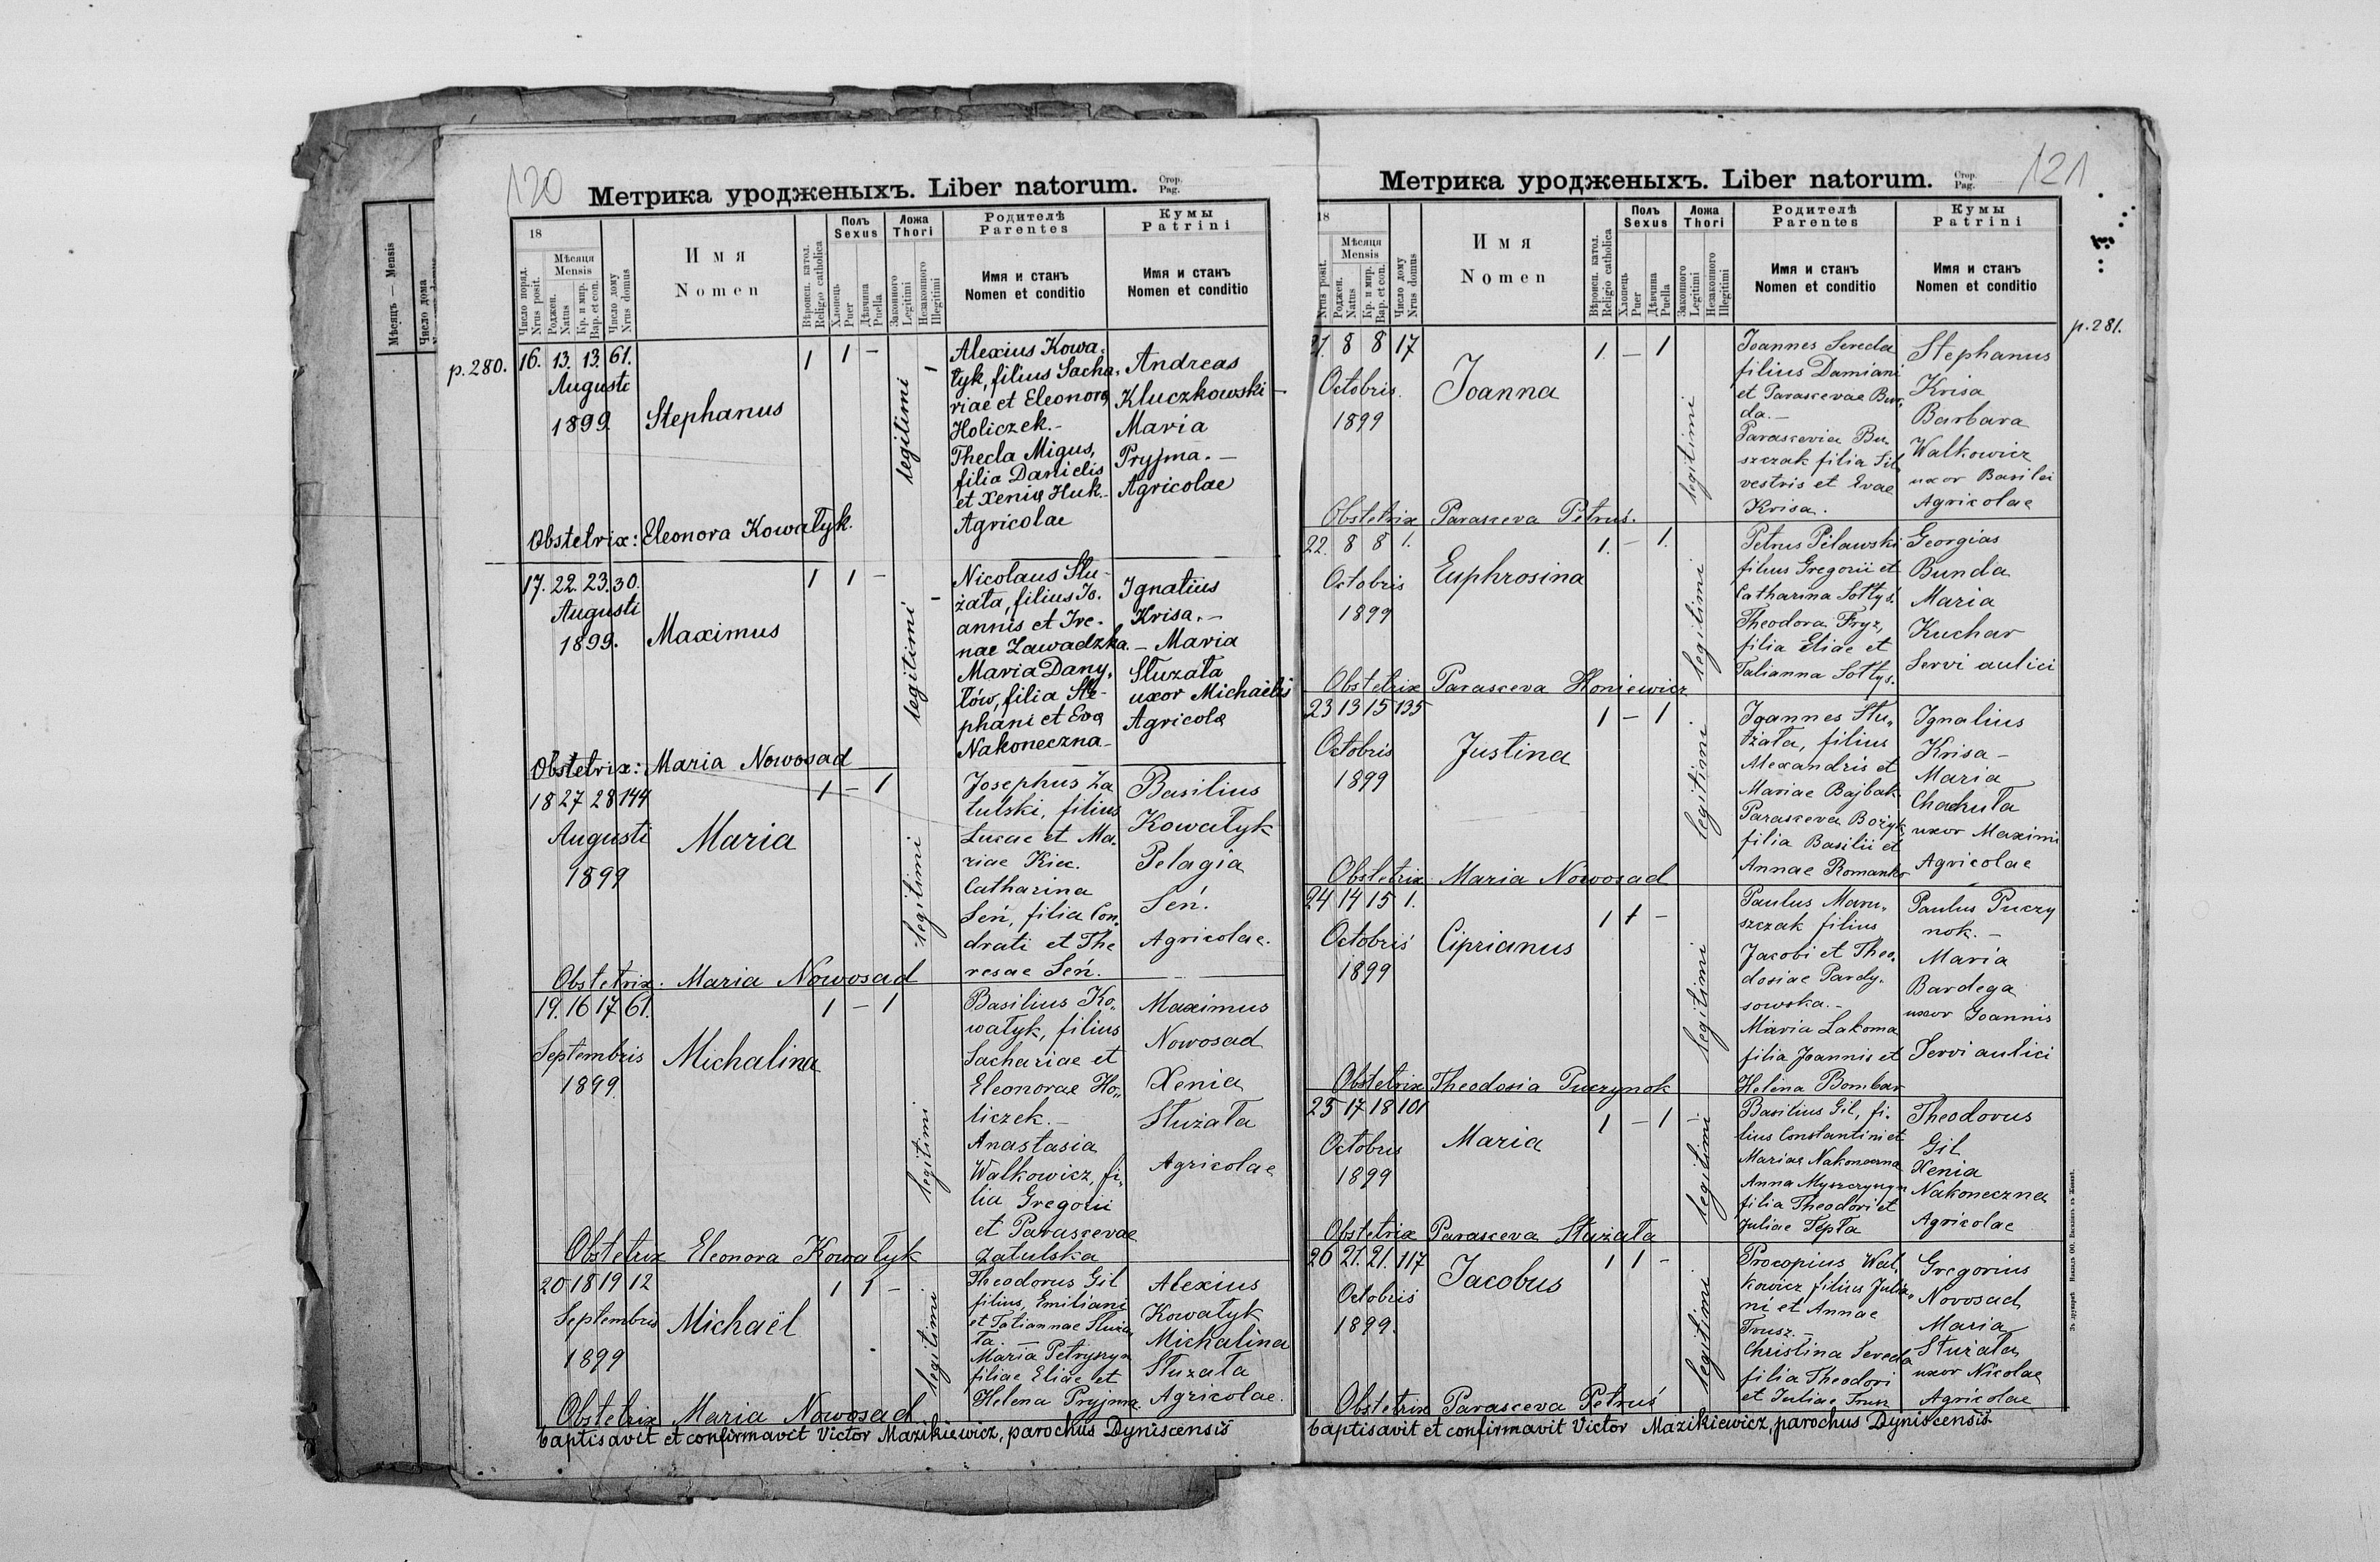 Мѣсяцъ — Mensis
Число дома
120
Метрика уродженыхъ. Liber natorum. Стор. Pag.
18
Число поряд.
Nrus posit.
Мѣсяця
Mensis
Роджен.
Natus
Кр. и мир.
Bap. et con.
Число дому
Nrus domus
Имя
Nomen
Вѣроисп. катол.
Religio catholica
Полъ
Sexus
Хлопець
Puer
Дѣвчина
Puella
Ложа
Thori
Законного
Legitimi
Незаконного
Illegitimi
Родителѣ
Parentes
Имя и станъ
Nomen et conditio
Кумы
Patrini
Имя и станъ
Nomen et conditio
p. 280.
16. 13. 13. 61.
Augusti
1899.
Stephanus
1 1 –
legitimi
Alexius Kowa-
łyk, filius Sacha-
riae et Eleonora
Holiczek.-
Thecla Migus,
filia Danielis
et Xenia Huk.-
Agricolae
Andreas
Kluczkowski –
Maria
Pryjma. –
Agricolae
Obstetrix: Eleonora Kowałyk.
17. 22. 23. 30.
Augusti
1899.
Maximus
1 1 –
legitimi
Nicolaus Słu-
żata, filius Jo-
annis et Ire-
nae Zawadzka.
Maria Dany-
łów, filia Ste-
phani et Eva
Nakoneczna-
Ignatius
Krisa. –
– Maria
Służata
uxor Michaelis
Agricola
Obstetrix: Maria Nowosad
18 27 28 144
Augusti
1899
Maria
1 – 1
legitimi
Josephus Za
tulski, filius
Lucae et Ma-
riae Kiec.
Catharina
Seń, filia Con-
drati et The
resae Seń.
Basilius
Kowałyk
Pelagia
Seń.
Agricolae.
Obstetrix. Maria Nowosad
19. 16 17 61.
Septembris
1899.
Michalina
1 – 1
legitimi
Basilius Ko-
wałyk, filius
Sachariae et
Eleonorae Ho-
liczek. –
Anastasia
Walkowicz, fi-
lia Gregorii
et Parascevae
Zatulska
Maximus
Nowosad
Xenia
Służata
Agricolae
Obstetrix Eleonora Kowałyk
20 18 19 12
Septembris
1899
Michaël
1 1 –
legitimi
Theodorus Gil
filius, Emiliani
et Tatiannae Służa
ta. –
Maria Petryszyn
filiae Eliae et
Helena Pryjma
Alexius
Kowałyk
Michalina
Służata
Agricolae.
Obstetrix Maria Nowosad
baptisavit et confirmavit Victor Mazikiewicz, parochus Dyniscensis
121
Метрика уродженыхъ. Liber natorum. Стор. Pag.
18
Nrus posit.
Мѣсяця
Mensis
Роджен.
Natus
Кр. и мир.
Bap. et con.
Число дому
Nrus domus
Имя
Nomen
Вѣроисп. катол.
Religio catholica
Полъ
Sexus
Хлопець
Puer
Дѣвчина
Puella
Ложа
Thori
Законного
Legitimi
Незаконного
Illegitimi
Родителѣ
Parentes
Имя и станъ
Nomen et conditio
Кумы
Patrini
Имя и станъ
Nomen et conditio
p. 281.
21. 8 8 17
Octobris.
1899
Joanna
1. – 1
legitimi
Joannes Sereda
filius Damiani
et Parascevae Bur-
da. –
Parascevia Bu-
szczak filia Sil
vestris et Evae
Krisa.
Stephanus
Krisa
Barbara
Walkowicz
uxor Basilei
Agricolae
Obstetrix Parasceva Petruś.
22. 8 8 1.
Octobris
1899
Euphrosina
1. – 1.
legitimi
Petrus Pilawski
filius Gregorii et
Catharina Sołtys.
Theodora Fryz,
filia Eliae et
Tatianna Sołtys.
Georgias
Bunda
Maria
Kuchar
Servi aulici
Obstetrix Parasceva Honiewicz
23 13 15 135
Octobris
1899
Justina
1 – 1
legitimi
Joannes Słu-
żata, filius
Alexandris et
Mariae Bajbak
Parasceva Bożyk,
filia Basilii et
Annae Romanko
Ignatius
Krisa –
Maria
Chachuła
uxor Maximi
Agricolae
Obstetrix Maria Nowosad
24 14 15 1.
Octobris
1899
Ciprianus
1 1 –
legitimi
Paulus Maru-
szczak filius
Jacobi et Theo-
dosiae Pardy-
sowska. –
Maria Łakoma
filia Joannis et
Helena Bombar
Paulus Puczy
nok. –
Maria
Bardega
uxor Joannis
Servi aulici
Obstetrix Theodosia Puczynok
25 17 18 101
Octobris
1899
Maria
1 – 1
legitimi
Basilius Gil, fi-
lius Constantini et
Mariae Nakoneczna
Anna Myszczyszyn
filia Theodori et
Juliae Tepta
Theodorus
Gil
Xenia
Nakoneczna
Agricolae
Obstetrix Parasceva Służata
26 21. 21. 117
Octobris
1899.
Jacobus
1 1 –
legitimi
Procopius Wal-
kowicz filius Julia-
ni et Annae
Trusz. –
Christina Sereda
filia Theodori
et Juliae Trusz
Gregorius
Novosad
Maria
Służata
uxor Nicolae
Agricolae
Obstetrix Parasceva Petruś
baptisavit et confirmavit Victor Mazikiewicz, parochus Dyniscensis